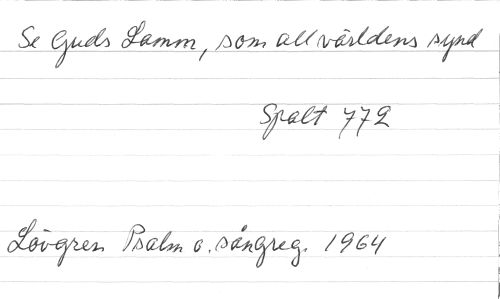 Se Guds Lamm, som all världens synd
Spalt 772
Lövgren Psalm o. sångreg. 1964